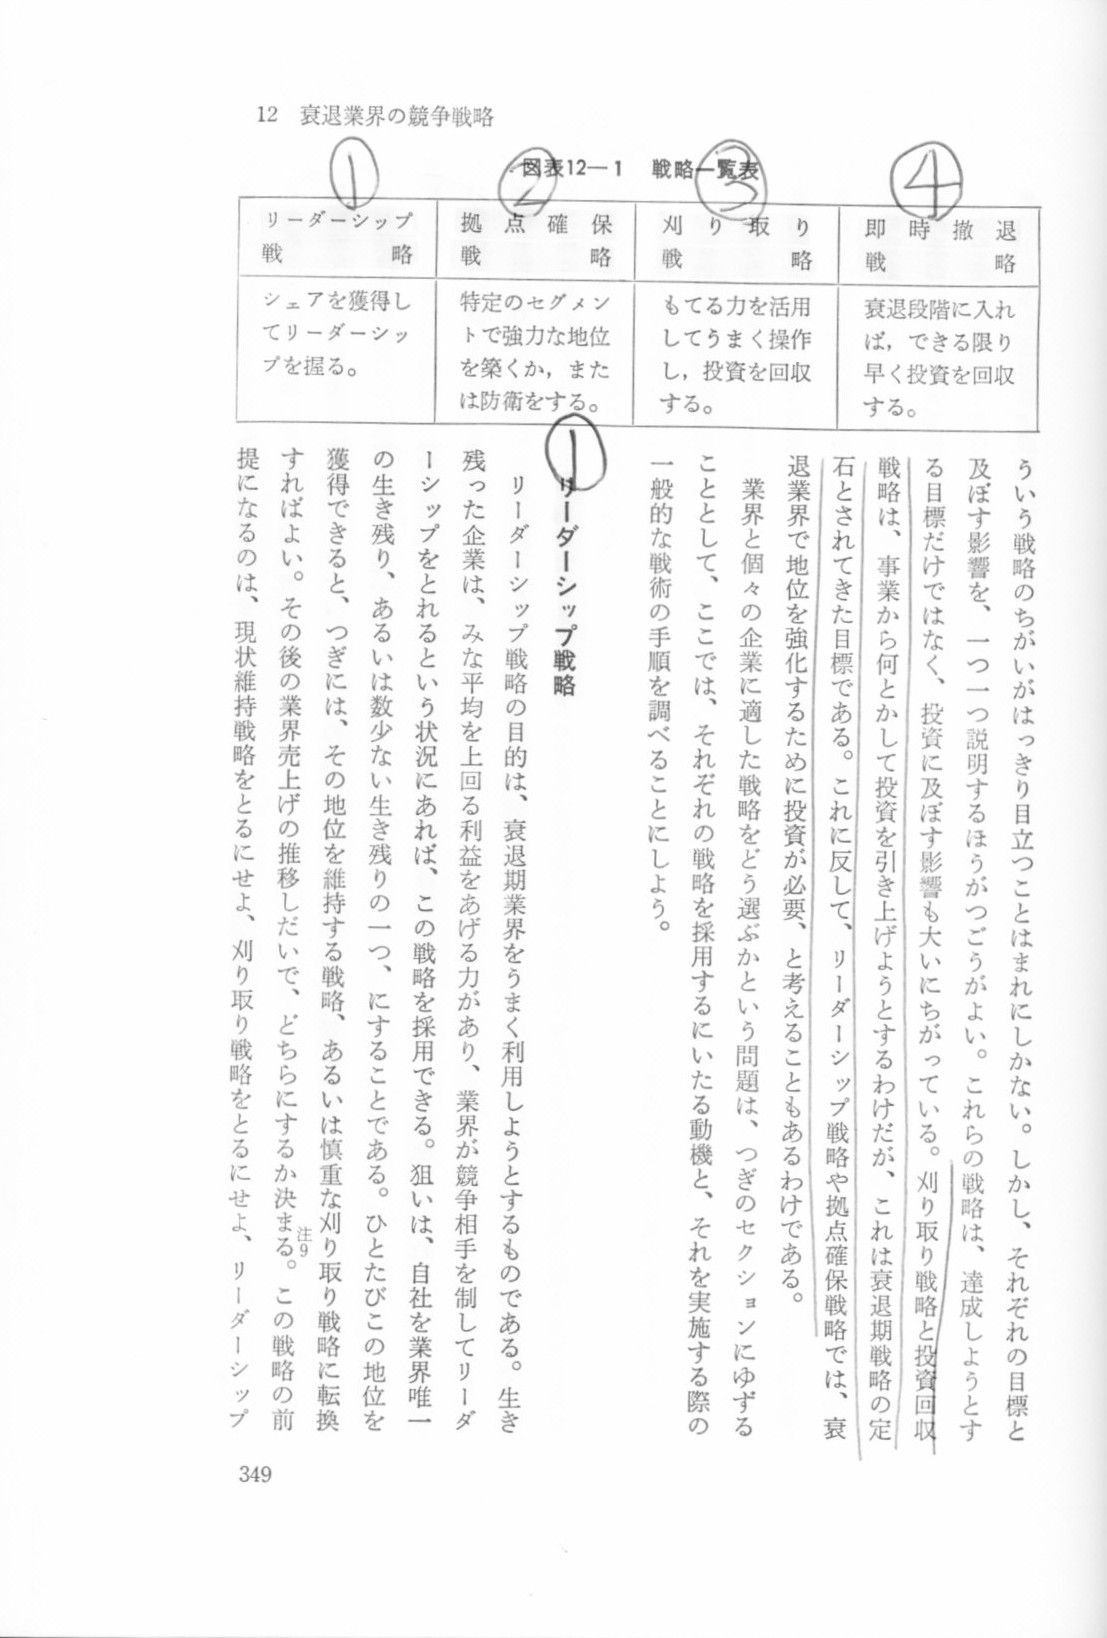 12 衰退業界の競争戦略
図表12―1 戦略一覧表
① ② ③ ④
リーダーシップ
戦略
拠点確保
戦略
刈り取り
戦略
即時撤退
戦略
シェアを獲得し
てリーダーシッ
プを握る。
特定のセグメン
トで強力な地位
を築くか，また
は防衛をする。
もてる力を活用
してうまく操作
し，投資を回収
する。
衰退段階に入れ
ば，できる限り
早く投資を回収
する。
ういう戦略のちがいがはっきり目立つことはまれにしかない。しかし、それぞれの目標と
及ぼす影響を、一つ一つ説明するほうがつごうがよい。これらの戦略は、達成しようとす
る目標だけではなく、投資に及ぼす影響も大いにちがっている。刈り取り戦略と投資回収
戦略は、事業から何とかして投資を引き上げようとするわけだが、これは衰退期戦略の定
石とされてきた目標である。これに反して、リーダーシップ戦略や拠点確保戦略では、衰
退業界で地位を強化するために投資が必要、と考えることもあるわけである。
業界と個々の企業に適した戦略をどう選ぶかという問題は、つぎのセクションにゆずる
こととして、ここでは、それぞれの戦略を採用するにいたる動機と、それを実施する際の
一般的な戦術の手順を調べることにしよう。
①
リーダーシップ戦略
リーダーシップ戦略の目的は、衰退期業界をうまく利用しようとするものである。生き
残った企業は、みな平均を上回る利益をあげる力があり、業界が競争相手を制してリーダ
ーシップをとれるという状況にあれば、この戦略を採用できる。狙いは、自社を業界唯一
の生き残り、あるいは数少ない生き残りの一つ、にすることである。ひとたびこの地位を
獲得できると、つぎには、その地位を維持する戦略、あるいは慎重な刈り取り戦略に転換
すればよい。その後の業界売上げの推移しだいで、どちらにするか決まる。注9この戦略の前
提になるのは、現状維持戦略をとるにせよ、刈り取り戦略をとるにせよ、リーダーシップ
349